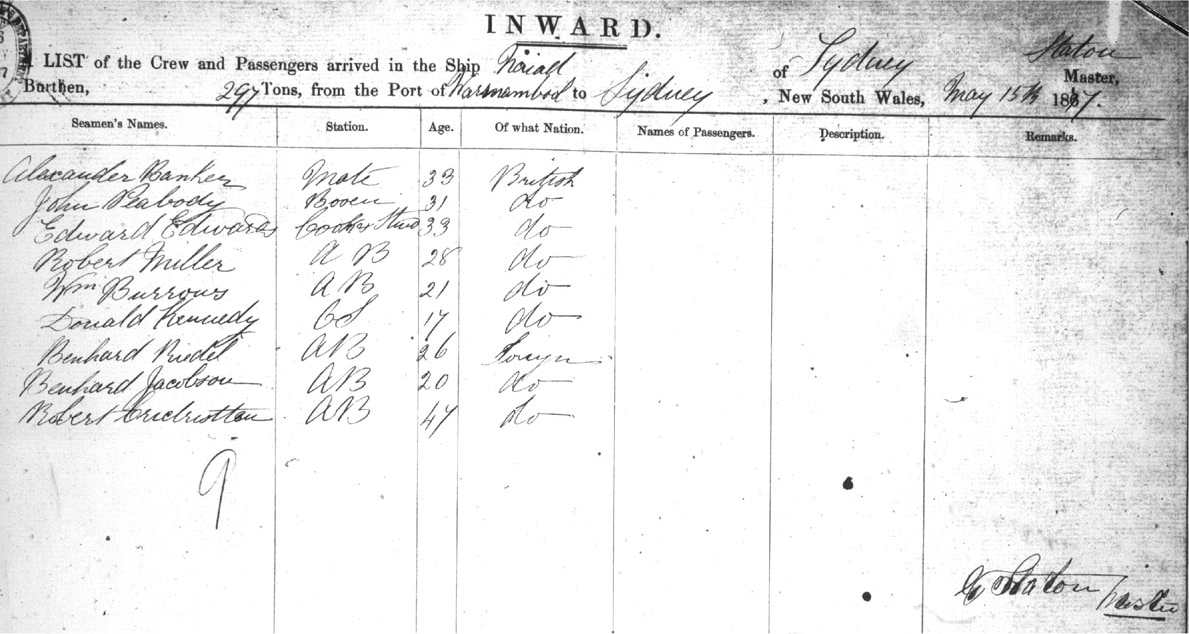 INWARD.
A LIST of the Crew and Passengers arrived in the Ship Naiad of Sydney Staton Master,
Burthen, 297 Tons, from the Port of Warrnambool to Sydney, New South Wales, May 15th 1867.
Seamen's Names. Station. Age. Of what Nation. Names of Passengers. Description. Remarks.
Alexander Banker Mate 33 British
John Peabody Bosen 31 do
Edward Edwards Cook & Stwd 33 do
Robert Miller A B 28 do
Wm Burrows A B 21 do
Donald Kennedy OS 17 do
Benhard Riedel AB 26
Benhard Jacobson AB 20 do
Robert AB 47 do
9
G Staton Master